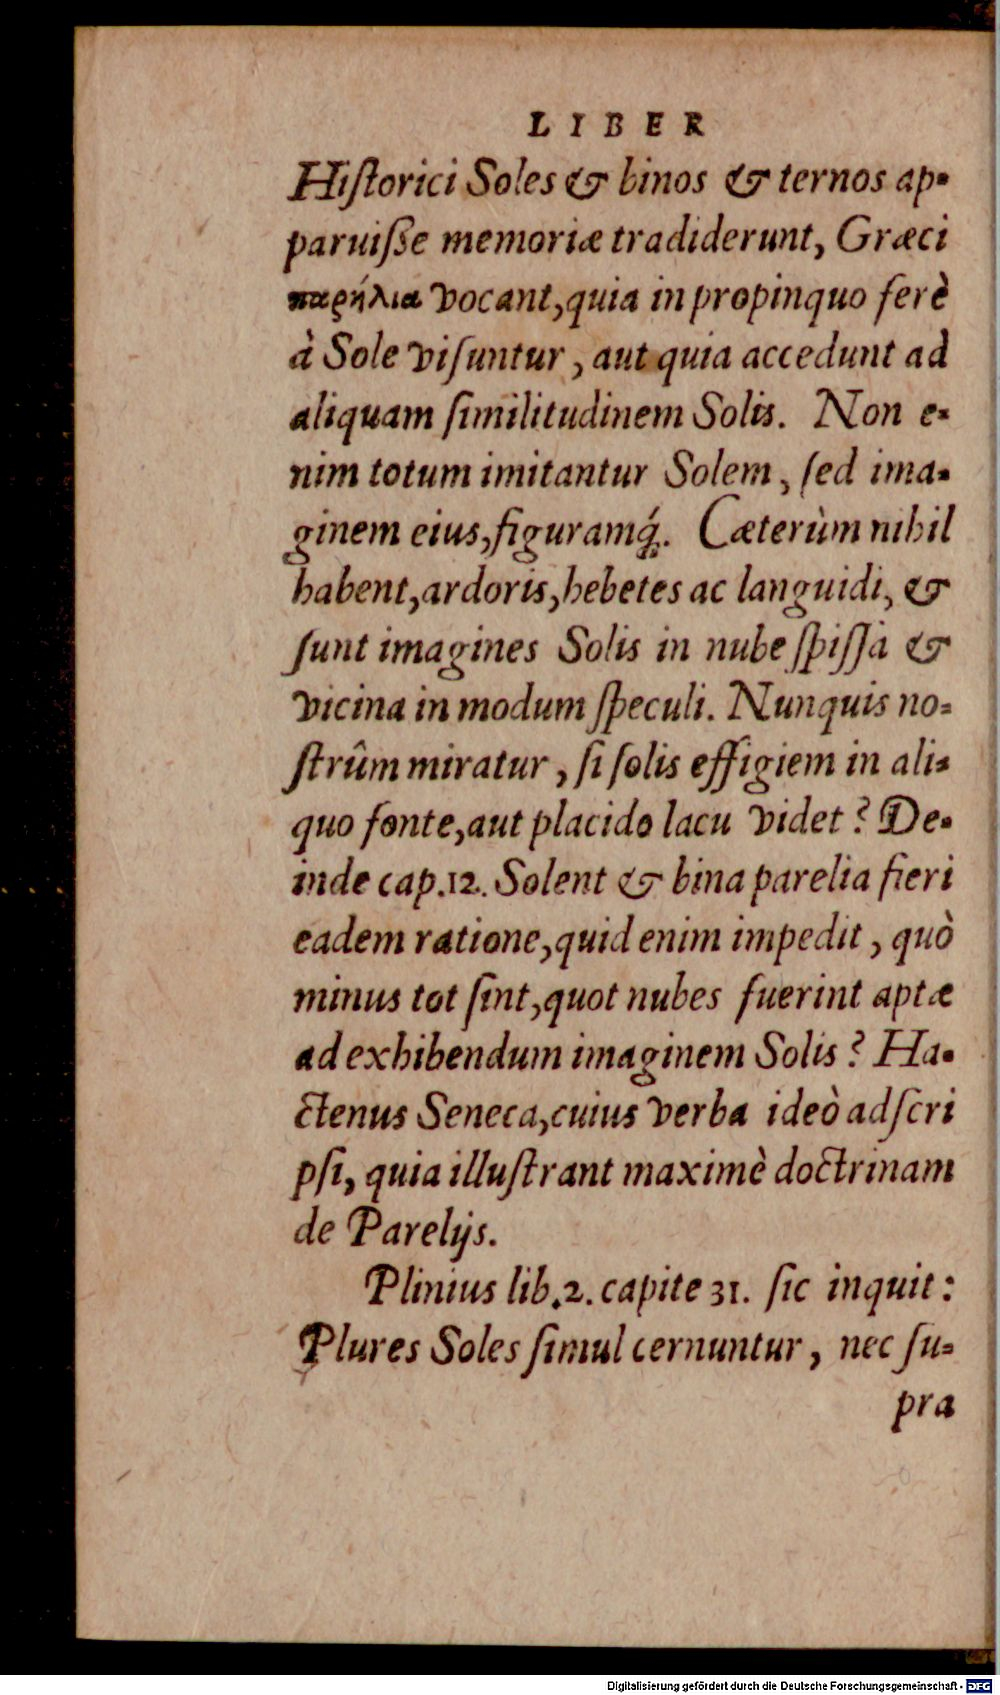 LIBER
Hiſtorici Soles & binos & ternos ap-
paruiſſe memoriæ tradiderunt, Græci
παρήλια vocant, quia in propinquo ferè
à Sole viſuntur, aut quia accedunt ad
aliquam ſimilitudinem Solis. Non e-
nim totum imitantur Solem, ſed ima-
ginem eius, figuramq́;. Cæterùm nihil
habent, ardoris, hebetes ac languidi, &
ſunt imagines Solis in nube ſpiſſa &
vicina in modum ſpeculi. Nunquis no-
ſtrûm miratur, ſi ſolis effigiem in ali-
quo fonte, aut placido lacu videt? De-
inde cap. 12. Solent & bina parelia fieri
eadem ratione, quid enim impedit, quò
minus tot ſint, quot nubes fuerint aptæ
ad exhibendum imaginem Solis? Ha-
ctenus Seneca, cuius verba ideò adſcri
pſi, quia illuſtrant maximè doctrinam
de Parelijs.
Plinius lib. 2. capite 31. ſic inquit:
Plures Soles ſimul cernuntur, nec ſu-
pra
Digitalisierung gefördert durch die Deutsche Forschungsgemeinschaft - DFG